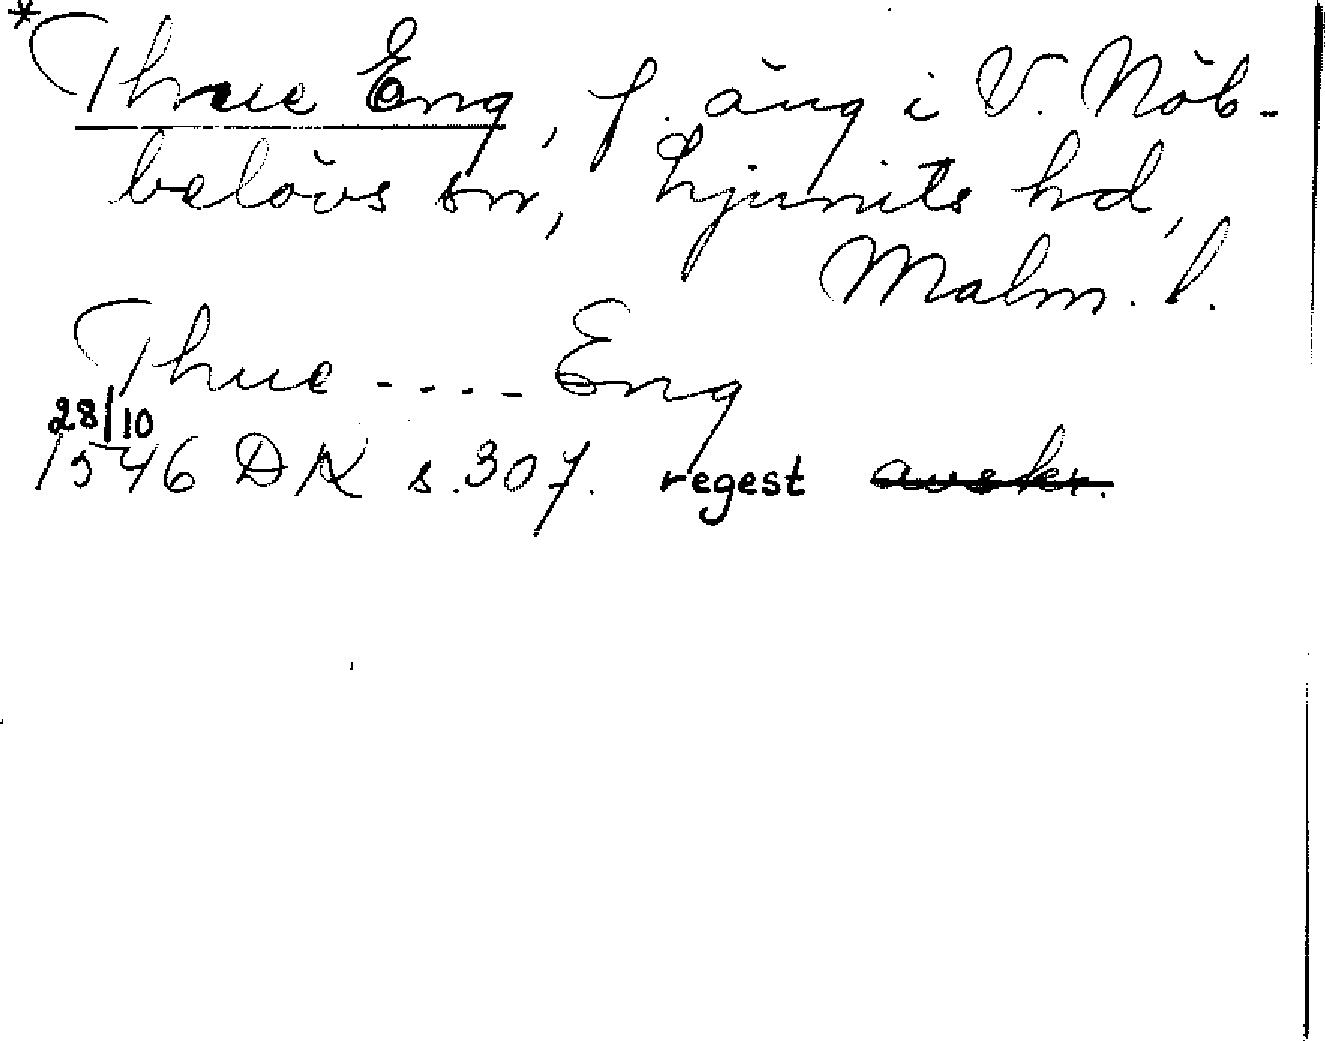 *
Thrue Eng, f. äng i V. Nöb-
belövs sn, Ljunits hd,
Malm. l.
Thue .... Eng
28/10
1546 DK s. 307. regest avskr.